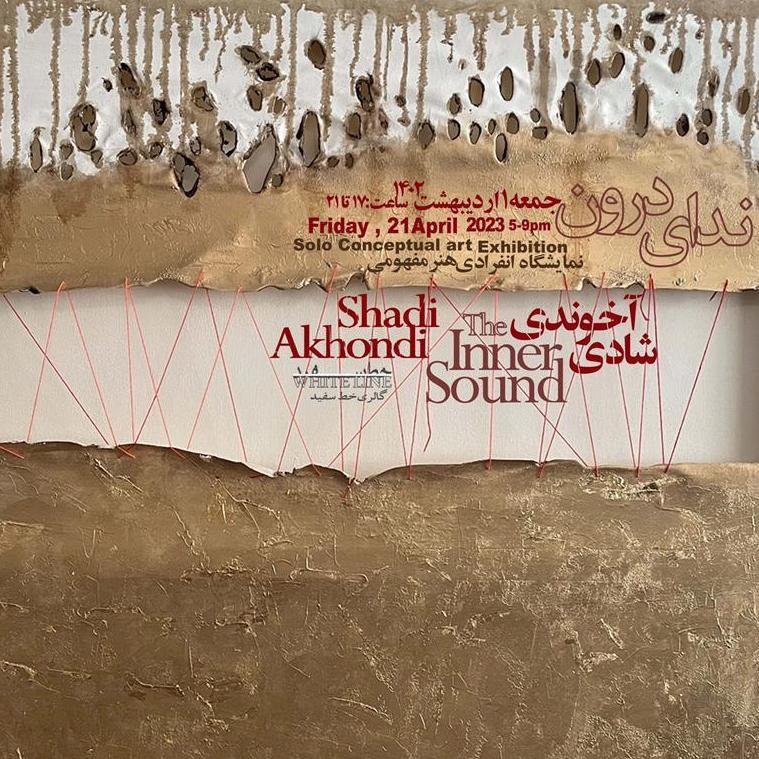 ندای درون
جمعه ۱ اردیبهشت ۱۴۰۲ ساعت: ۱۷ تا ۲۱
Friday , 21April 2023 5-9pm
Solo Conceptual art Exhibition
نمایشگاه انفرادی هنر مفهومی
Shadi
Akhondi
The
Inner
Sound
آخوندی
شادی
خط سفید
WHITE LINE
گالری خط سفید